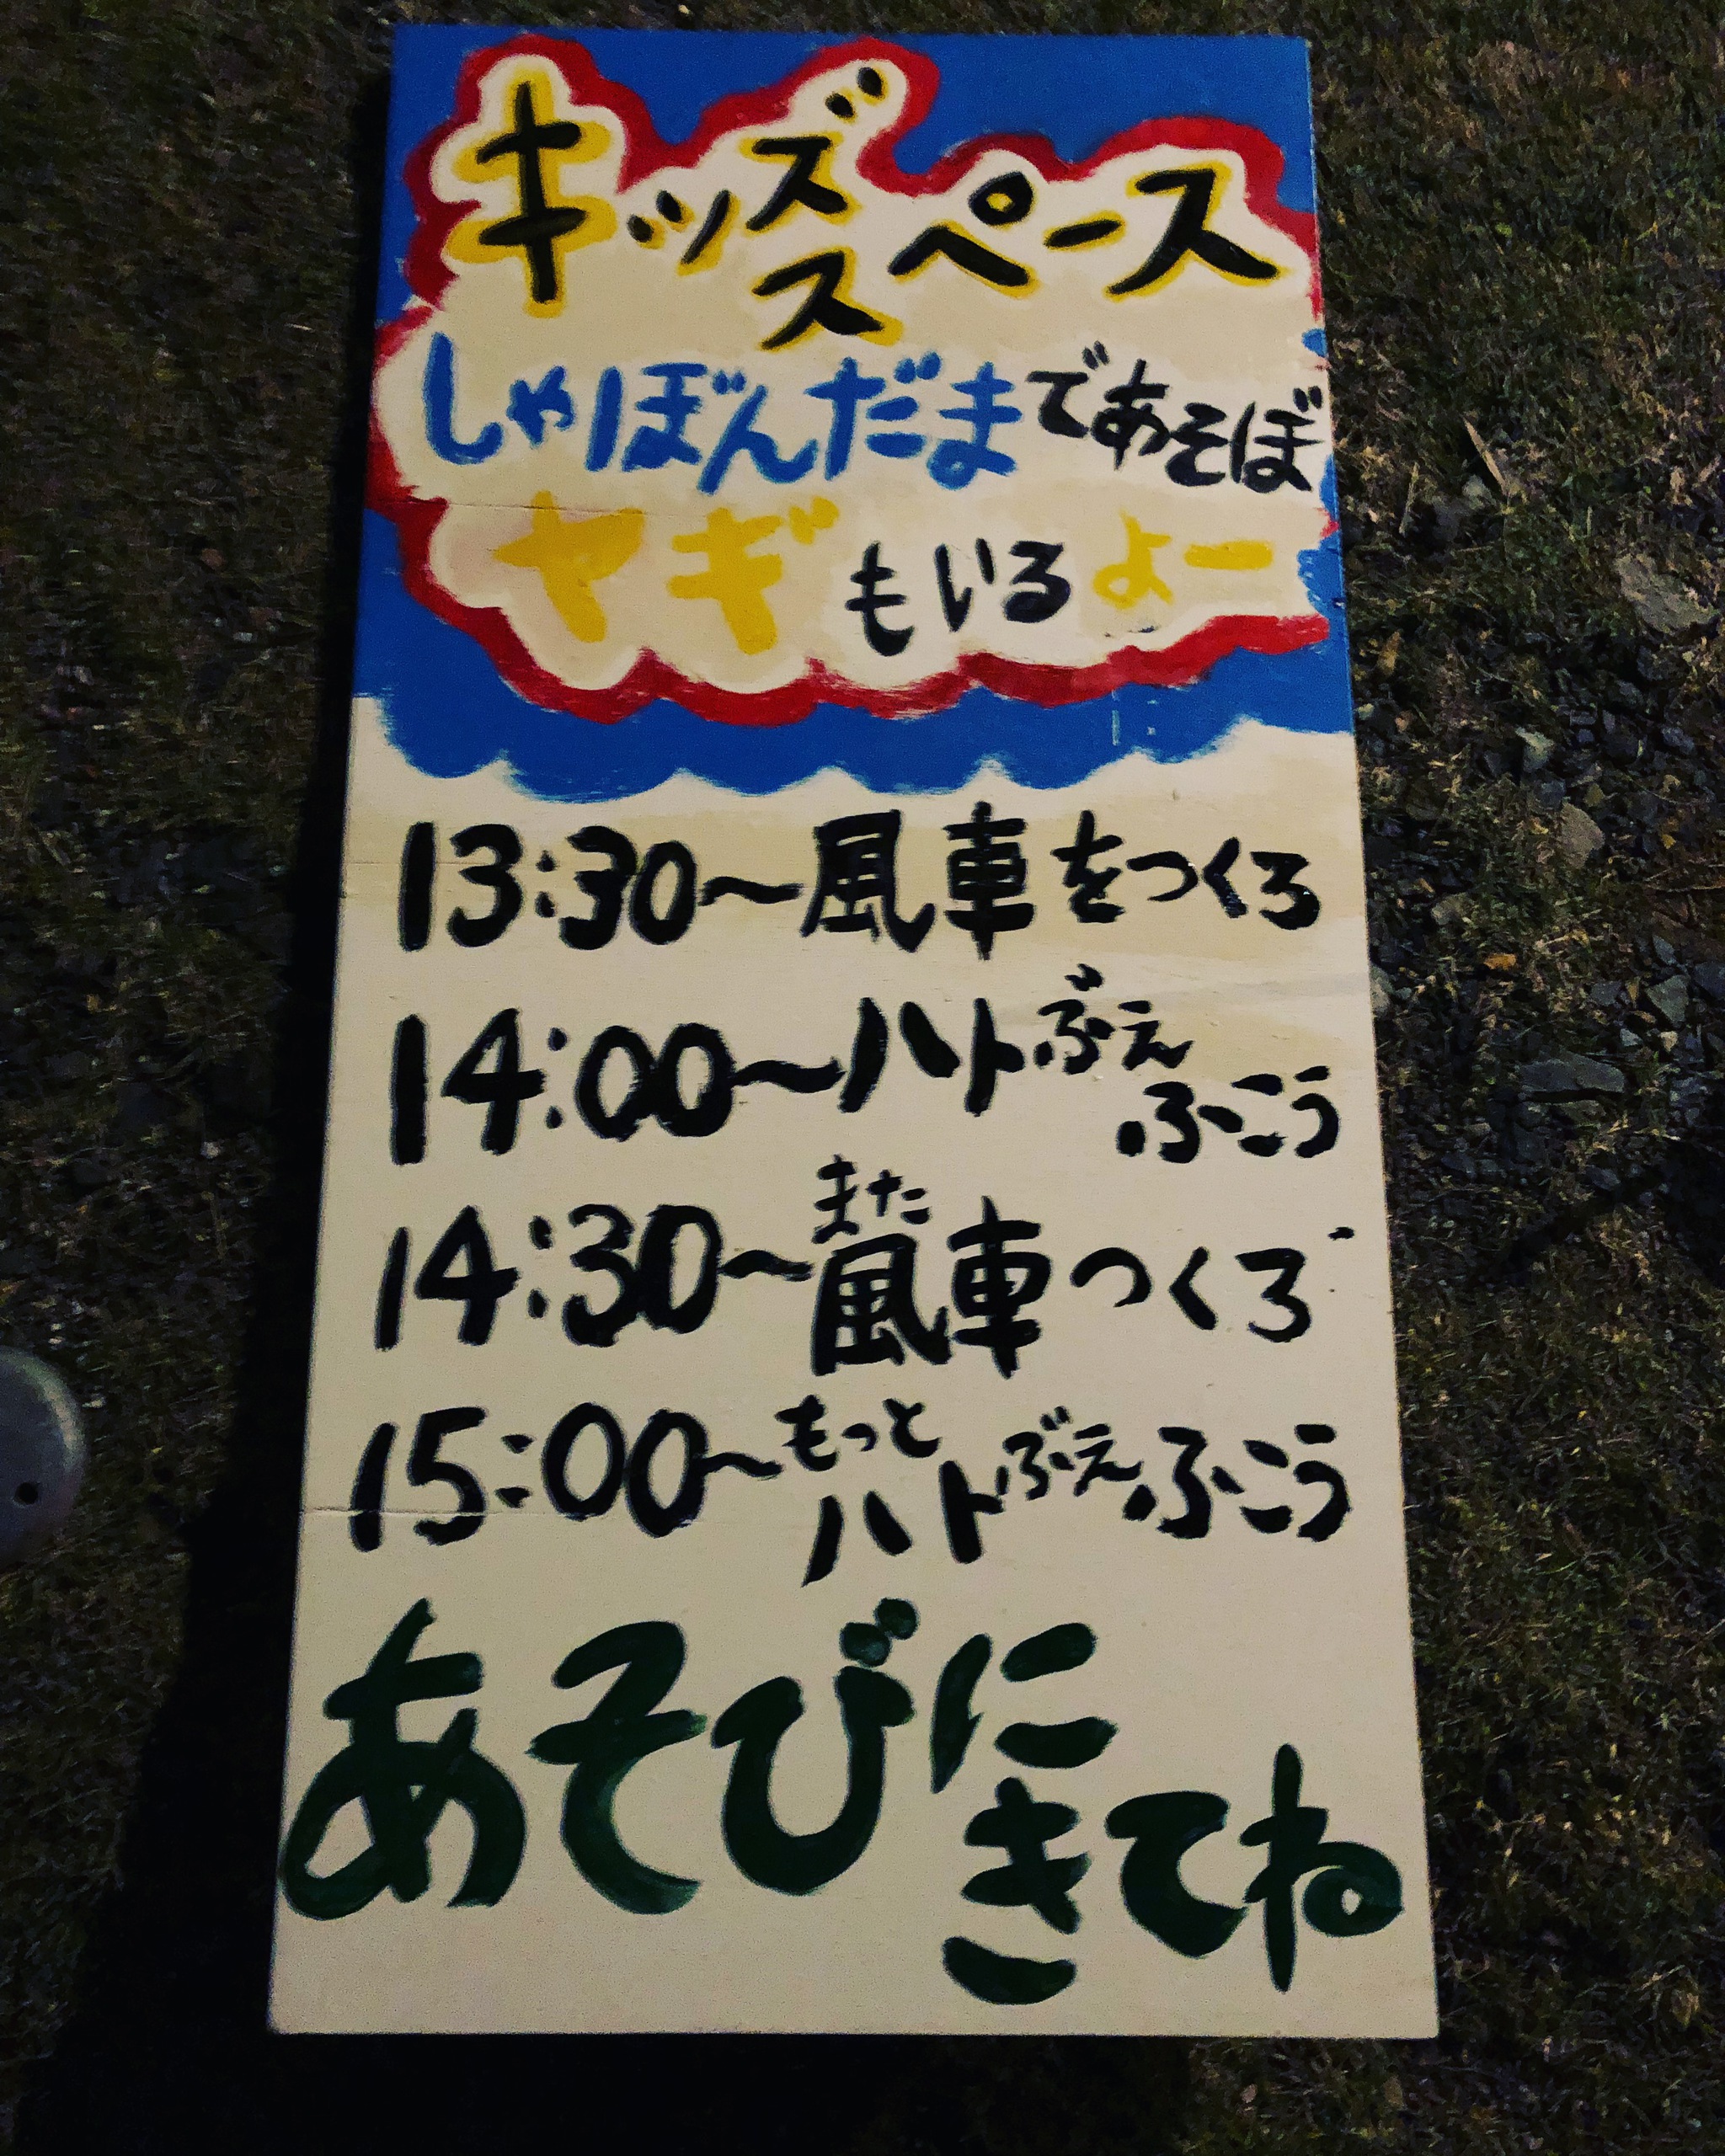 キッズスペース
しゃぼんだまであそぼ
ヤギもいるよー
13:30〜風車をつくろ
14:00〜ハトぶえ
ふこう
14:30〜また風車つくろ
15:00〜もっとハトぶえふこう
あそびに
きてね